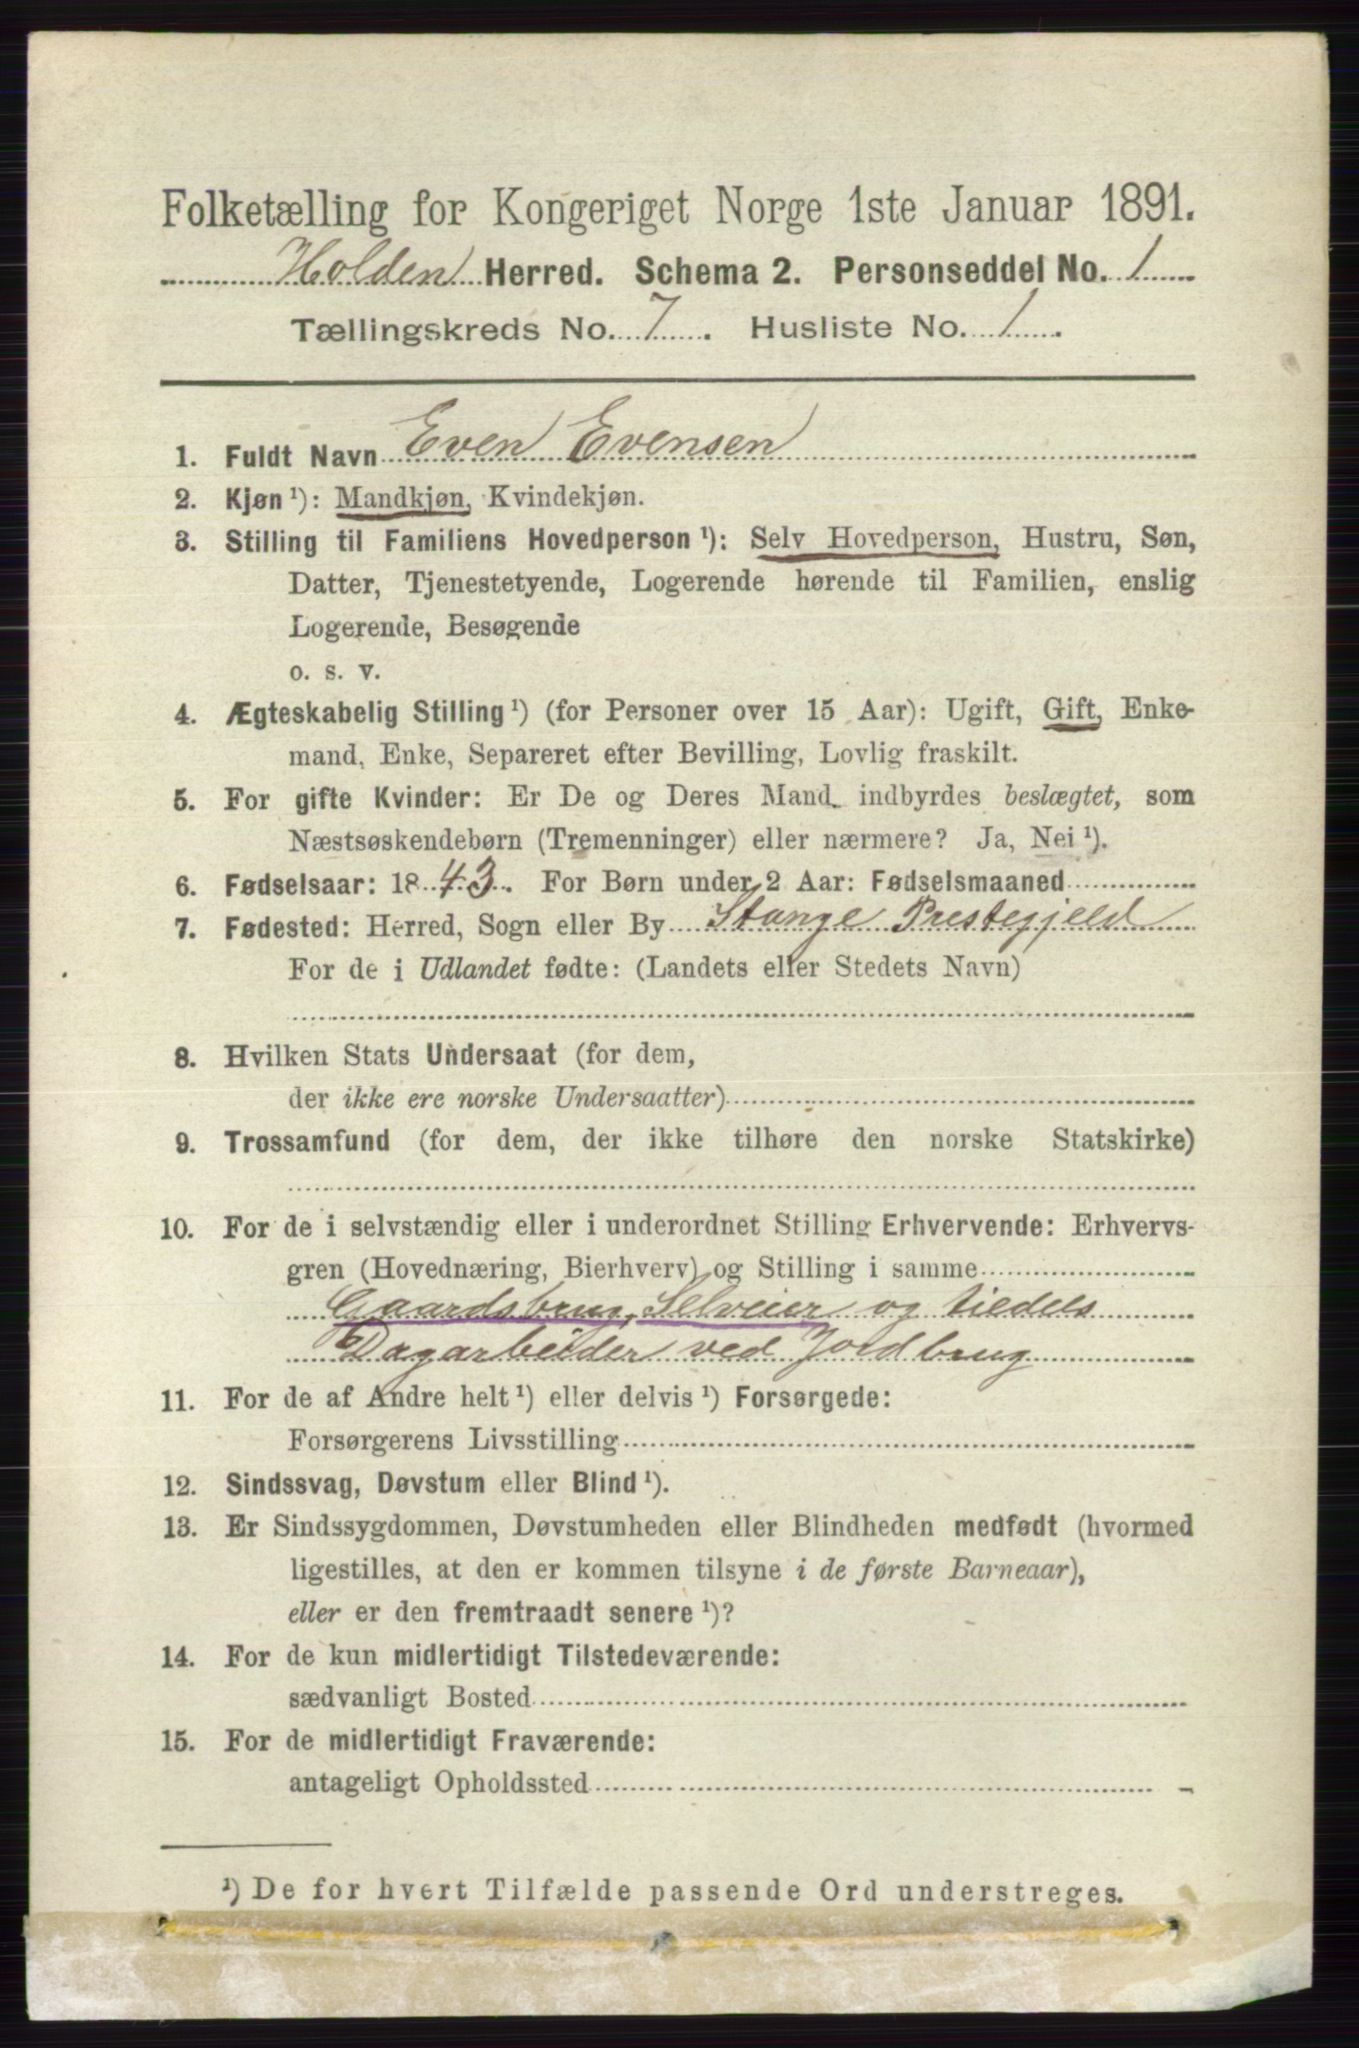 Folketælling for Kongeriget Norge 1ste Januar 1891.
Holden Herred. Schema 2. Personseddel No. 1
Tællingskreds No. 7. Husliste No. 1.
1. Fuldt Navn Even Evensen
2. Kjøn ¹): Mandkjøn, Kvindekjøn.
3. Stilling til Familiens Hovedperson ¹): Selv Hovedperson, Hustru, Søn,
Datter, Tjenestetyende, Logerende hørende til Familien, enslig
Logerende, Besøgende
o. s. v.
4. Ægteskabelig Stilling ¹) (for Personer over 15 Aar): Ugift, Gift, Enke-
mand, Enke, Separeret efter Bevilling, Lovlig fraskilt.
5. For gifte Kvinder: Er De og Deres Mand indbyrdes beslægtet, som
Næstsøskendebørn (Tremenninger) eller nærmere? Ja, Nei ¹).
6. Fødselsaar: 1843. For Børn under 2 Aar: Fødselsmaaned
7. Fødested: Herred, Sogn eller By Stange Prestegjeld
For de i Udlandet fødte: (Landets eller Stedets Navn)
8. Hvilken Stats Undersaat (for dem,
der ikke ere norske Undersaatter)
9. Trossamfund (for dem, der ikke tilhøre den norske Statskirke)
10. For de i selvstændig eller i underordnet Stilling Erhvervende: Erhvervs-
gren (Hovednæring, Bierhverv) og Stilling i samme
Gaardsbrug, Selveier og tildels
Dagarbeider ved Jordbrug
11. For de af Andre helt ¹) eller delvis ¹) Forsørgede:
Forsørgerens Livsstilling
12. Sindssvag, Døvstum eller Blind ¹).
13. Er Sindssygdommen, Døvstumheden eller Blindheden medfødt (hvormed
ligestilles, at den er kommen tilsyne i de første Barneaar),
eller er den fremtraadt senere ¹)?
14. For de kun midlertidigt Tilstedeværende:
sædvanligt Bosted
15. For de midlertidigt Fraværende:
antageligt Opholdssted
¹) De for hvert Tilfælde passende Ord understreges.